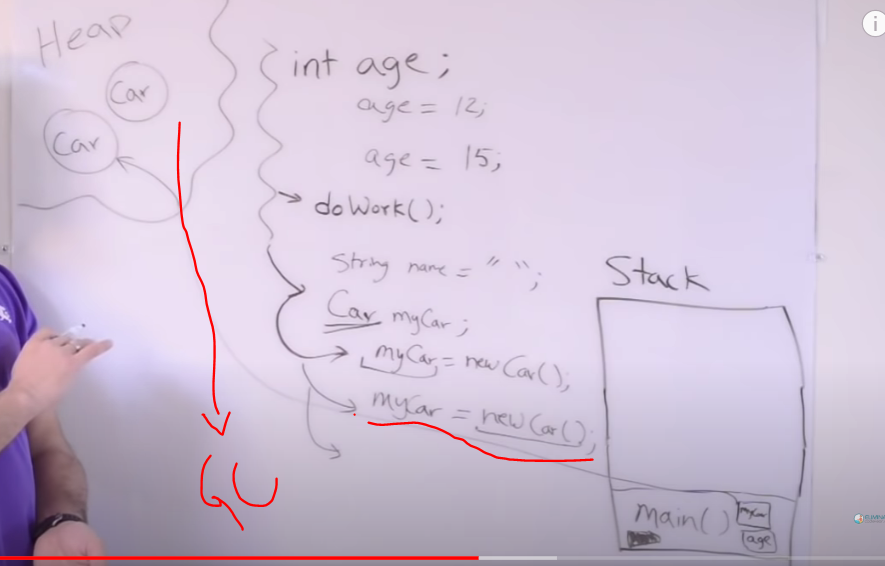 Heap
Car
Car
int age;
age = 12;
age = 15;
doWork();
String name = " ";
Car myCar;
myCar = new Car();
myCar = new Car();
GC
Stack
main()
myCar
age